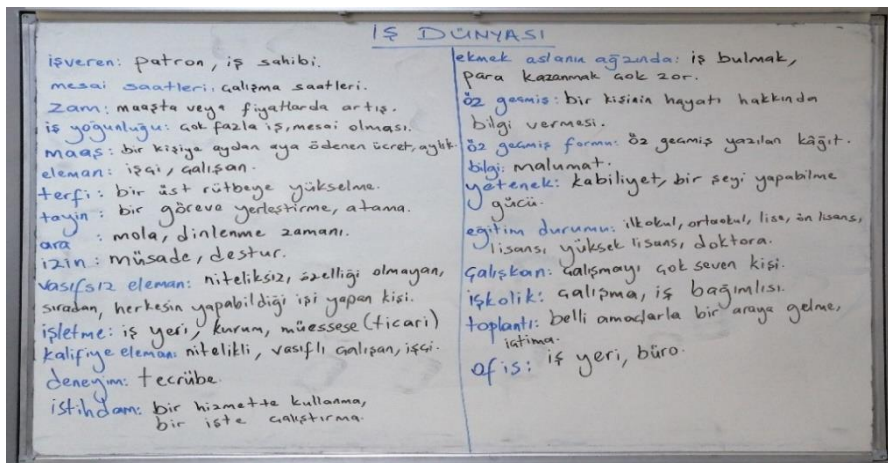 İŞ DÜNYASI
işveren: patron, iş sahibi.
mesai saatleri: çalışma saatleri.
zam: maaşta veya fiyatlarda artış.
iş yoğunluğu: çok fazla iş, mesai olması.
maaş: bir kişiye aydan aya ödenen ücret, aylık.
eleman: işçi, çalışan.
terfi: bir üst rütbeye yükselme.
tayin: bir göreve yerleştirme, atama.
ara : mola, dinlenme zamanı.
izin: müsade, destur.
vasıfsız eleman: niteliksiz, özelliği olmayan,
sıradan, herkesin yapabildiği işi yapan kişi.
işletme: iş yeri, kurum, müessese (ticari)
kalifiye eleman: nitelikli, vasıflı çalışan, işçi.
deneyim: tecrübe.
istihdam: bir hizmette kullanma,
bir işte çalıştırma.
ekmek aslanın ağzında: iş bulmak,
para kazanmak çok zor.
öz geçmiş: bir kişinin hayatı hakkında
bilgi vermesi.
öz geçmiş formu: öz geçmiş yazılan kâğıt.
bilgi: malumat.
yetenek: kabiliyet, bir şeyi yapabilme
gücü.
eğitim durumu: ilkokul, ortaokul, lise, ön lisans,
lisans, yüksek lisans, doktora.
çalışkan: çalışmayı çok seven kişi.
işkolik: çalışma, iş bağımlısı.
toplantı: belli amaçlarla bir araya gelme,
içtima.
ofis: iş yeri, büro.